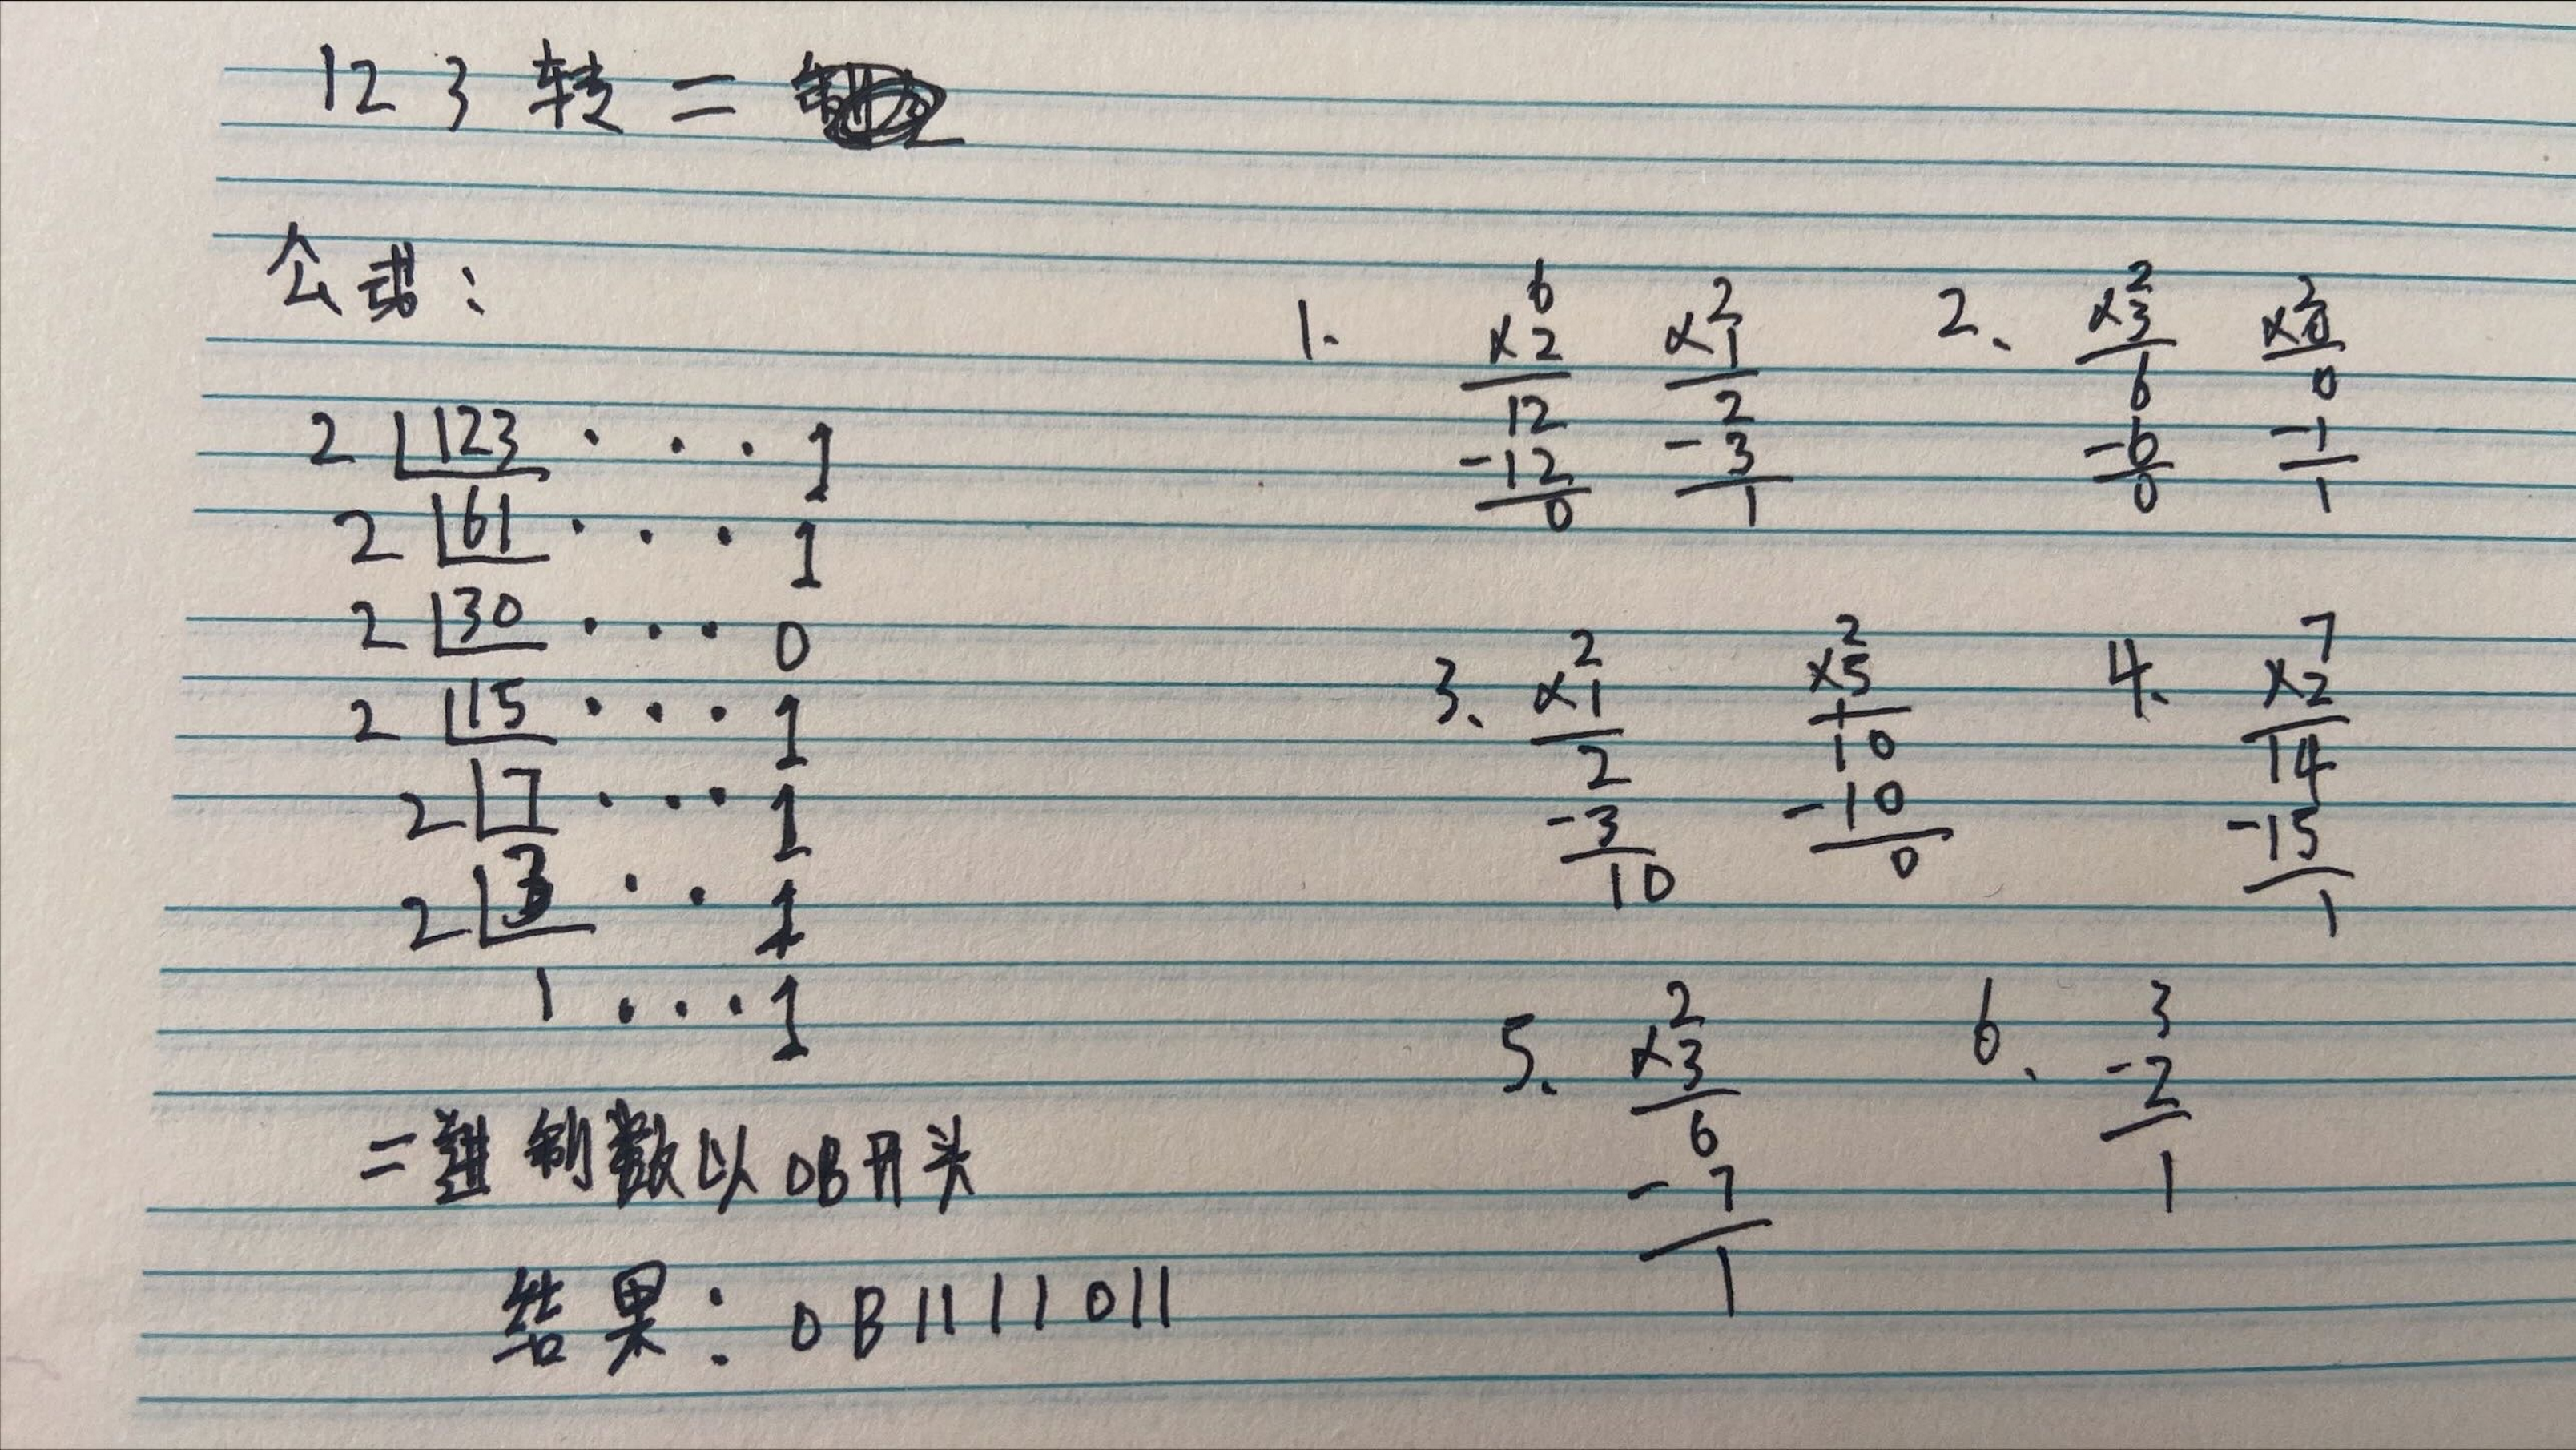 123转二
公式：
2 123 . . . 1
2 61 . . . 1
2 30 . . . 0
2 15 . . . 1
2 7 . . . 1
2 3 . . 1
1 . . . 1
二进制数以0B开头
结果：0B1111011
1.
6
×2
12
-12
0
2
×1
2
-3
1
2、
2
×3
6
-6
0
2
×0
0
-1
1
3、
2
×1
2
-3
10
2
×5
10
-10
0
4、
7
×2
14
-15
1
5、
2
×3
6
-7
1
6、
3
-2
1